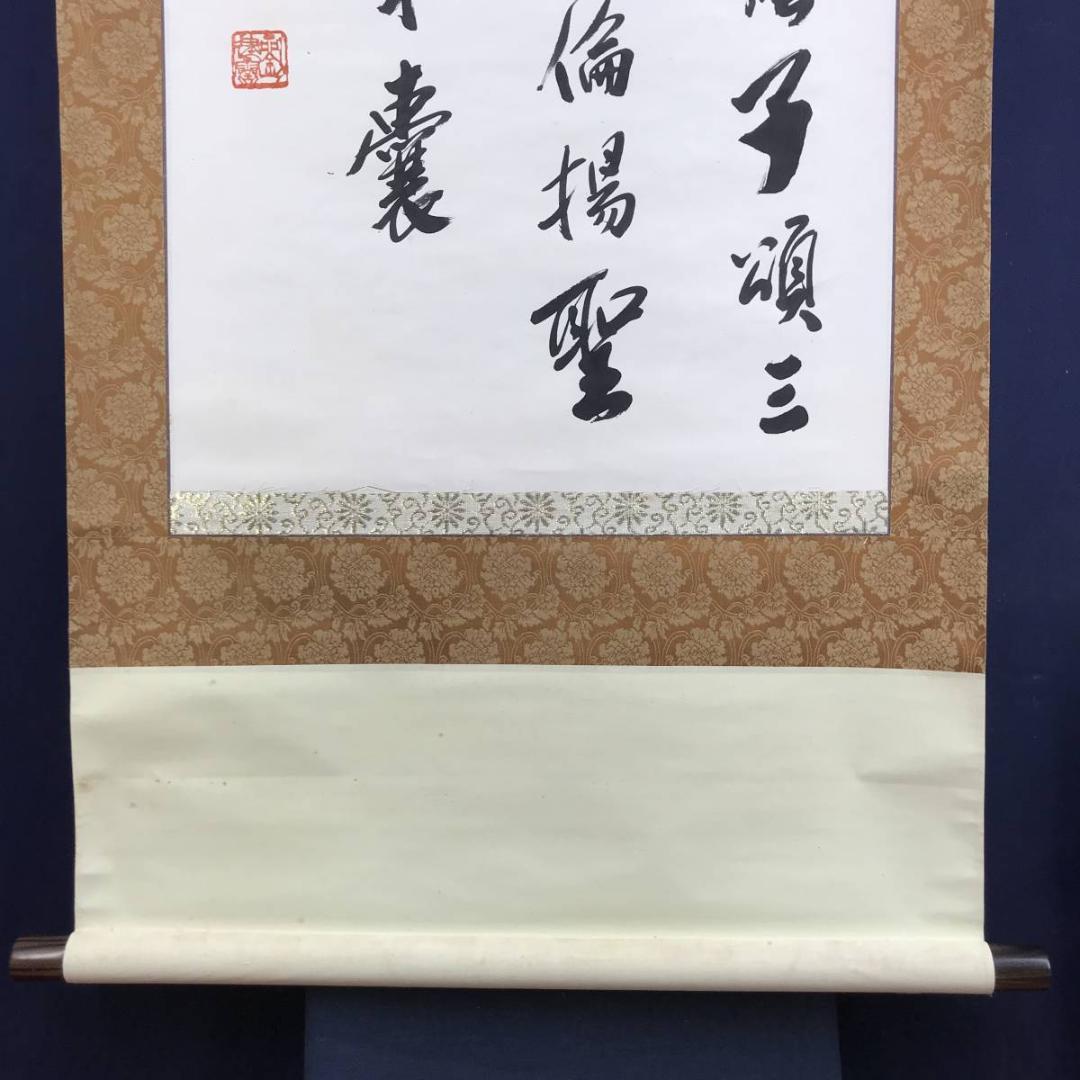 子頌三
倫揚聖
囊